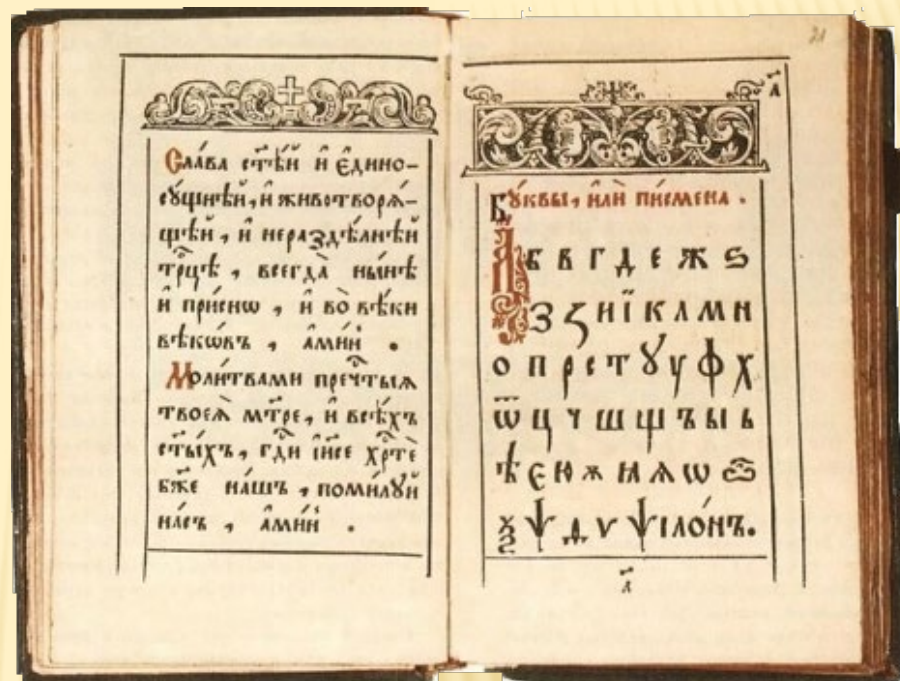 Сла́ва ст҃ѣ́й и҆ є҆дино-
сꙋ́щнѣй, и҆ животворѧ́-
щѣй, и҆ нераздѣ́лнѣй
трⷪ҇цѣ, всегда̀ ны́нѣ
и҆ при́снѡ, и҆ во̀ вѣ́ки
вѣкѡ́въ, а҆ми́нь.
Моли́твами пречⷭ҇тыѧ
твоеѧ̀ мт҃ре, и҆ всѣ́хъ
ст҃ы́хъ, гдⷭ҇и і҆и҃се хрⷭ҇тѐ
бж҃е на́шъ, поми́лꙋй
на́съ, а҆ми́нь.
21
а҃
Бꙋ́квы, и҆лѝ пи́смена.
А б в г д е ж ѕ
З ꙁ и ї к л м н
о п р с т ꙋ у ф х
ѿ ц ч ш щ ъ ы ь
ѣ є ю ѫ ꙗ ѧ ѡ ѽ
ѯ ѱ ѳ ѵ ѱіло́нъ.
а҃